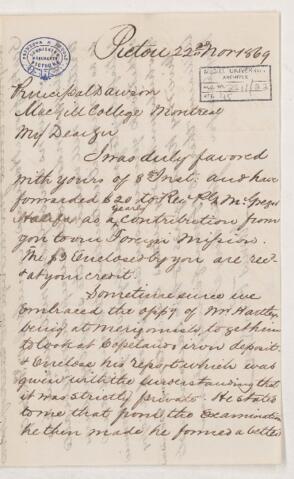 Pictou 22nd Nov 1869
McGILL UNIVERSITY
ARCHIVES
Principal Dawson
MacGill College Montreal
My Dear Sir
I was duly favored
with yours of 8 Inst. and have
forwarded $20 to Rev P. G. McGregor
Halifax as a yearly contribution from
you to our Foreign Mission.
The $3 enclosed by you are
& at your credit.
Sometime since we
Embraced the oppy of Mr Hartley
being at Merigomish to get him
to look at Copeland's iron deposit
& Enclose his report which was
given with the understanding that
it was strictly private. He stated
to me that from the Examination
he then made he formed a better